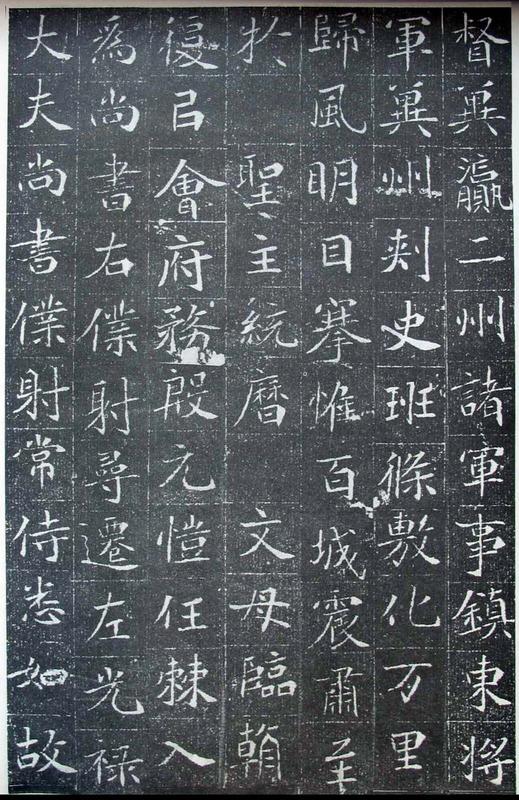 督冀瀛二州諸軍事鎮東將
軍冀州刾史班條敷化万里
歸風明目搴惟百城震肅至
扵聖主統曆文母臨朝
復㠯會府務殷元愷任棘入
爲尚書右僕射尋遷左光禄
大夫尚書僕射常侍悉如故